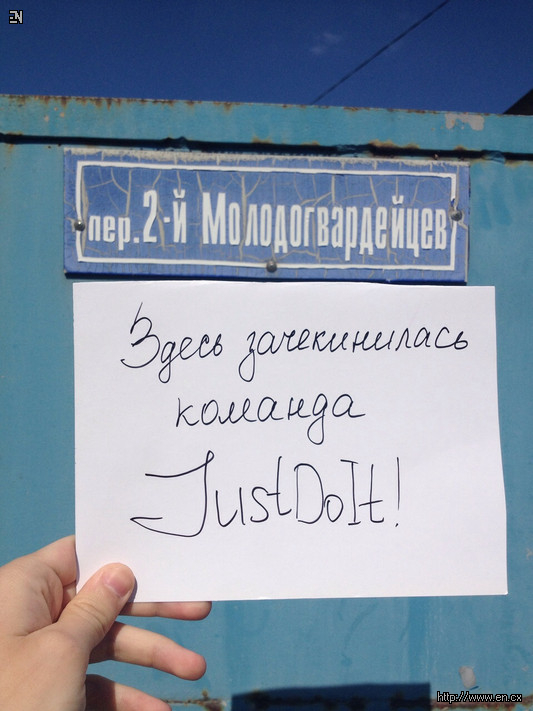 EN
пер. 2-й Молодогвардейцев
Здесь зачекинилась
команда
JustDoIt!
http://www.en.cx